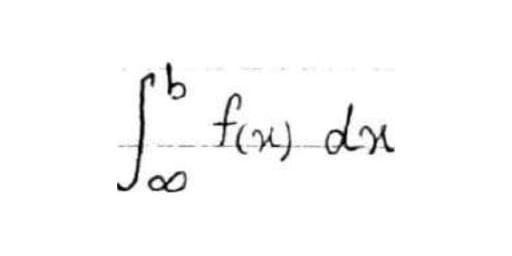 ∫_∞^b f(x) dx